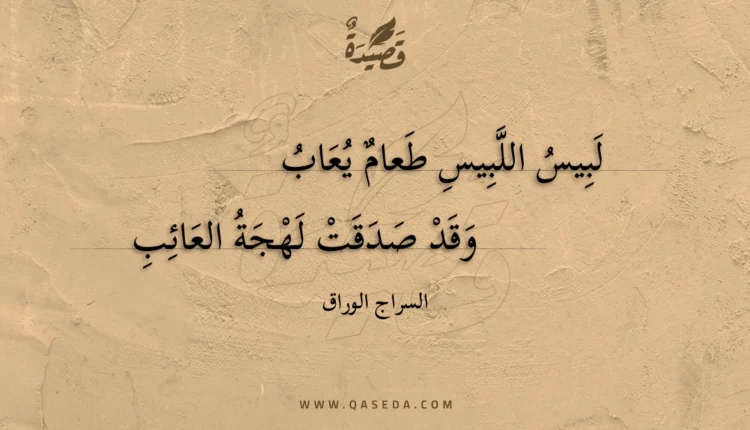 قَصِيدَةٌ
لَبِيسُ اللَّبِيسِ طَعامٌ يُعَابُ
وَقَدْ صَدَقَتْ لَهْجَةُ العَائِبِ
السراج الوراق
WWW.QASEDA.COM